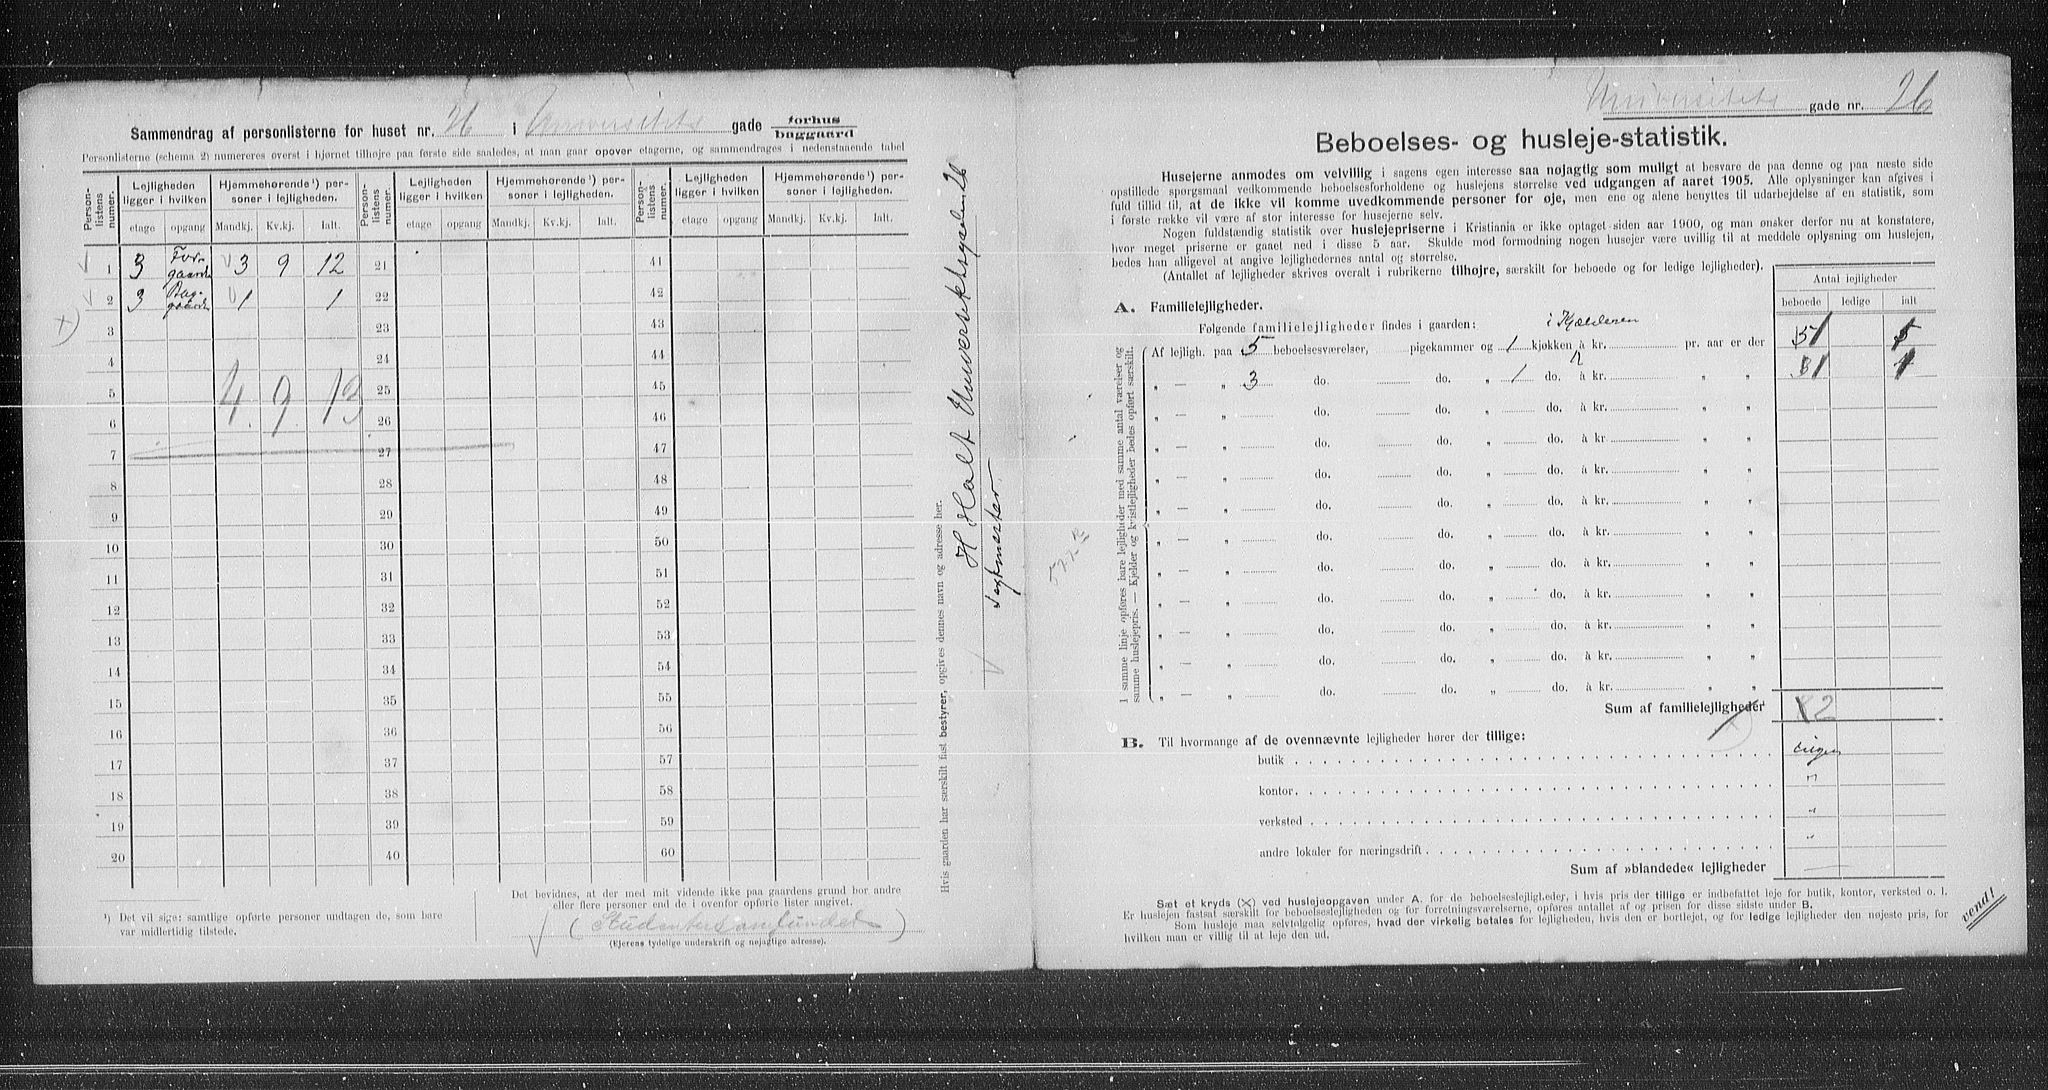 Sammendrag af personlisterne for huset nr. 26 i Universitets gade forhus
baggaard
Personlisterne (schema 2) numereres øverst i hjørnet tilhøjre paa første side saaledes, at man gaar opover etagerne, og sammendrages i nedenstaaende tabel
Person-listens numer. Lejligheden ligger i hvilken Hjemmehørende ¹) personer i lejligheden. Person-listens numer. Lejligheden ligger i hvilken Hjemmehørende ¹) personer i lejligheden. Person-listens numer. Lejligheden ligger i hvilken Hjemmehørende ¹) personer i lejligheden.
etage opgang Mandkj. Kv.kj. Ialt. etage opgang Mandkj. Kv.kj. Ialt. etage opgang Mandkj. Kv.kj. Ialt.
1 3 For-gaarde 3 9 12 21 41
2 3 Bag-gaarde 1 1 22 42
3 23 43
4 24 44
5 4. 9. 13 25 45
6 26 46
7 27 47
8 28 48
9 29 49
10 30 50
11 31 51
12 32 52
13 33 53
14 34 54
15 35 55
16 36 56
17 37 57
18 38 58
19 39 59
20 40 60
¹) Det vil sige: samtlige opførte personer undtagen de, som bare
var midlertidig tilstede.
Det bevidnes, at der med mit vidende ikke paa gaardens grund bor andre
eller flere personer end de i ovenfor opførte lister angivet.
(Studentersamfundet
(Ejerens tydelige underskrift og nøjagtige adresse).
Hvis gaarden har særskilt fast bestyrer, opgives dennes navn og adresse her.
H Holt Universitetsgaden 26
Universitets gade nr. 26
Beboelses- og husleje-statistik.
Husejerne anmodes om velvillig i sagens egen interesse saa nøjagtig som muligt at besvare de paa denne og paa næste side
opstillede spørgsmaal vedkommende beboelsesforholdene og huslejens størrelse ved udgangen af aaret 1905. Alle oplysninger kan afgives i
fuld tillid til, at de ikke vil komme uvedkommende personer for øje, men ene og alene benyttes til udarbejdelse af en statistik, som
i første række vil være af stor interesse for husejerne selv.
Nogen fuldstændig statistik over huslejepriserne i Kristiania er ikke optaget siden aar 1900, og man ønsker derfor nu at konstatere,
hvor meget priserne er gaaet ned i disse 5 aar. Skulde mod formodning nogen husejer være uvillig til at meddele oplysning om huslejen,
bedes han alligevel at angive lejlighedernes antal og størrelse.
(Antallet af lejligheder skrives overalt i rubrikerne tilhøjre, særskilt for beboede og for ledige lejligheder).
Antal lejligheder
beboede ledige ialt
A. Familielejligheder.
Følgende familielejligheder findes i gaarden: i Kjælderen
Af lejligh. paa 5 beboelsesværelser, pigekammer og 1 kjøkken à kr. pr. aar er der 1
„ — „ 3 do. do. „ 1 do. à kr. „ „ 1 1
„ — „ do. do. „ do. à kr. „ „
„ — „ do. do. „ do. à kr. „ „
„ — „ do. do. „ do. à kr. „ „
„ — „ do. do. „ do. à kr. „ „
„ — „ do. do. „ do. à kr. „ „
„ — „ do. do. „ do. à kr. „ „
„ — „ do. do. „ do. à kr. „ „
„ — „ do. do. „ do. à kr. „ „
„ — „ do. do. „ do. à kr. „ „
„ — „ do. do. „ do. à kr. „ „
I samme linje opføres bare lejligheder med samme antal værelser og
samme huslejepris. — Kjelder og kvistlejligheder bedes opført særskilt.
Sum af familielejligheder 2
B. Til hvormange af de ovennævnte lejligheder hører der tillige:
butik ingen
kontor „
verksted „
andre lokaler for næringsdrift „
Sum af »blandede« lejligheder —
Sæt et kryds (×) ved huslejeopgaven under A. for de beboelseslejligheder, i hvis pris der tillige er indbefattet leje for butik, kontor, verksted o. l.
Er huslejen fastsat særskilt for beboelseslejligheden og for forretningsværelserne, opføres antallet af og prisen for disse sidste under B.
Som husleje maa selvfølgelig opføres, hvad der virkelig betales for lejligheden, hvis den er bortlejet, og for ledige lejligheder den nøjeste pris, for
hvilken man er villig til at leje den ud.
vend!